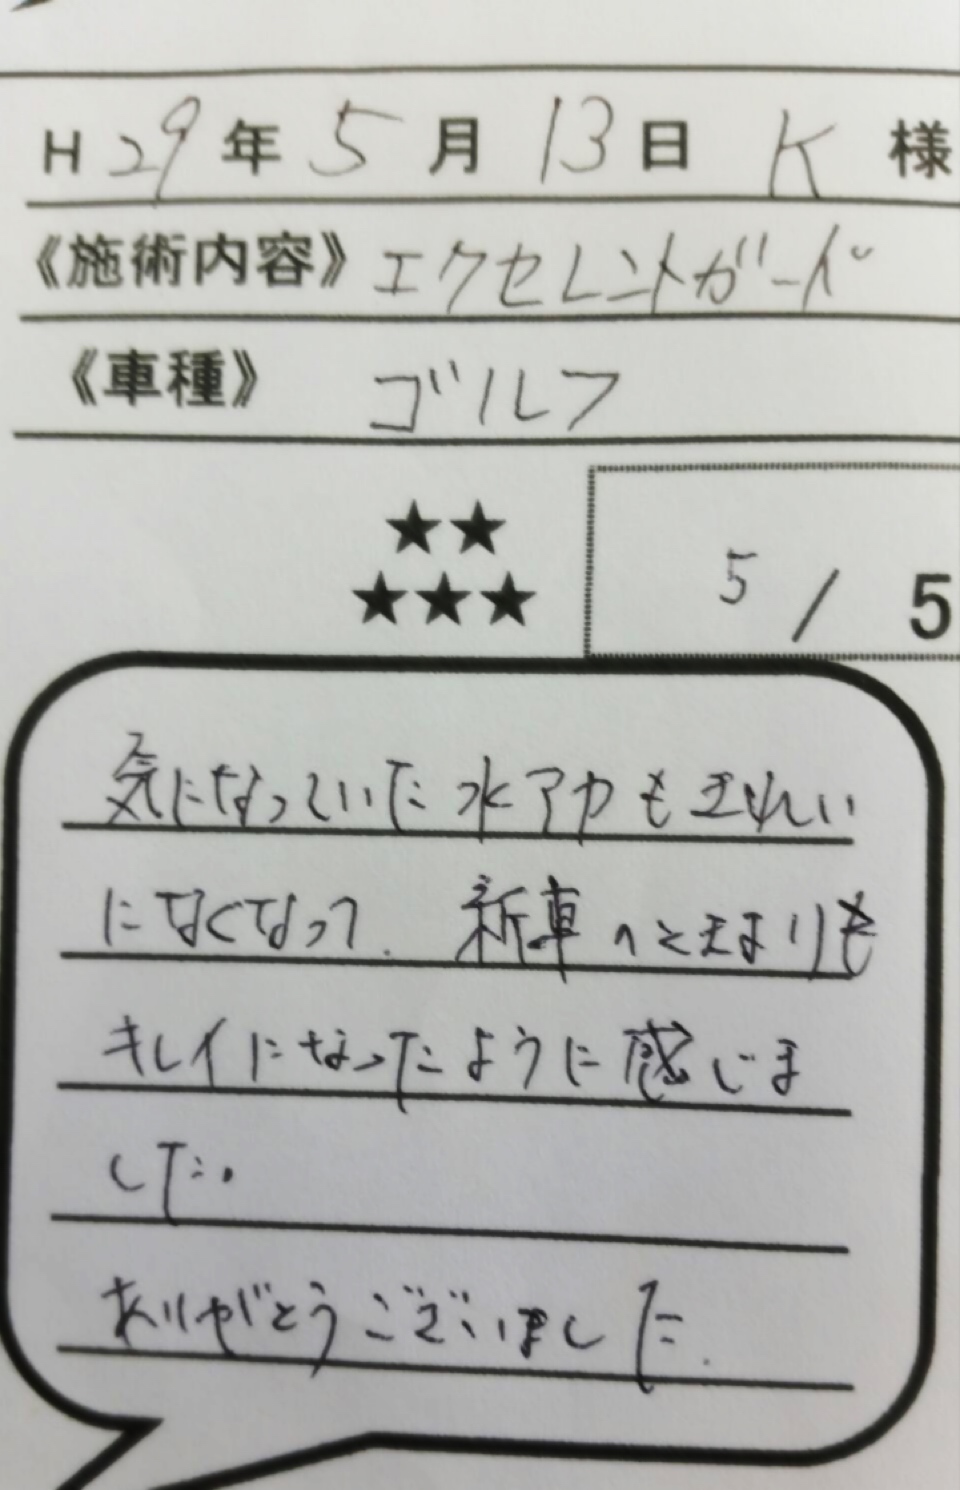 H 29年 5月 13日 K 様
《施術内容》エクセレントガード
《車種》ゴルフ
★★
★★★
5 / 5
気になっていた水アカもきれい
になくなって、新車のときよりも
キレイになったように感じま
した。
ありがとうございました。